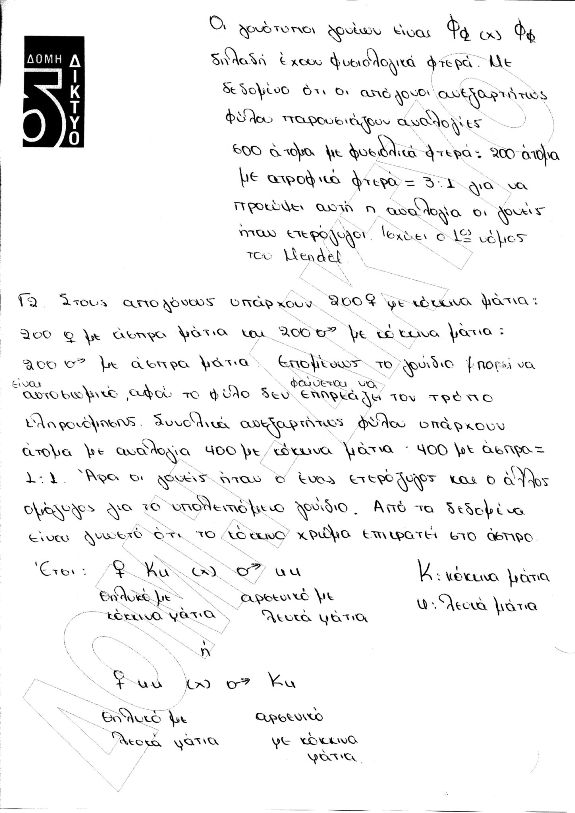 ΔΟΜΗ
5
ΔΙΚΤΥΟ
Οι γονότυποι γονέων είναι Φφ (x) Φφ
δηλαδή έχουν φυσιολογικά φτερά. Με
δεδομένο ότι οι απόγονοι ανεξαρτήτως
φύλου παρουσιάζουν αναλογίες
600 άτομα με φυσιολικά φτερά: 200 άτομα
με ατροφικά φτερά = 3:1 για να
προκύψει αυτή η αναλογία οι γονείς
ήταν ετερόζυγοι. Ισχύει ο 1ος νόμος
του Mendel
Γ2. Στους απογόνους υπάρχουν 200♀ με κόκκινα μάτια:
200 ♀ με άσπρα μάτια και 200♂ με κόκκινα μάτια:
200♂ με άσπρα μάτια. Επομένως το γονίδιο μπορεί να
είναι φαίνεται να
αυτοσωμικό, αφού το φύλο δεν επηρεάζει τον τρόπο
κληρονόμησης. Συνολικά ανεξαρτήτως φύλου υπάρχουν
άτομα με αναλογία 400 με κόκκινα μάτια : 400 με άσπρα=
1:1. Άρα οι γονείς ήταν ο ένας ετερόζυγος και ο άλλος
ομόζυγος για το υπολειπόμενο γονίδιο. Από τα δεδομένα
είναι γνωστό ότι το κόκκινο χρώμα επικρατεί στο άσπρο.
Έτσι: ♀ Κκ (x) ♂ κκ Κ: κόκκινα μάτια
θηλυκό με αρσενικό με κ: λευκά μάτια
κόκκινα μάτια λευκά μάτια
ή
♀ κκ (x) ♂ Κκ
θηλυκό με αρσενικό
λευκά μάτια με κόκκινα
μάτια.
ΔΟΜΗ - ΔΙΚΤΥΟ